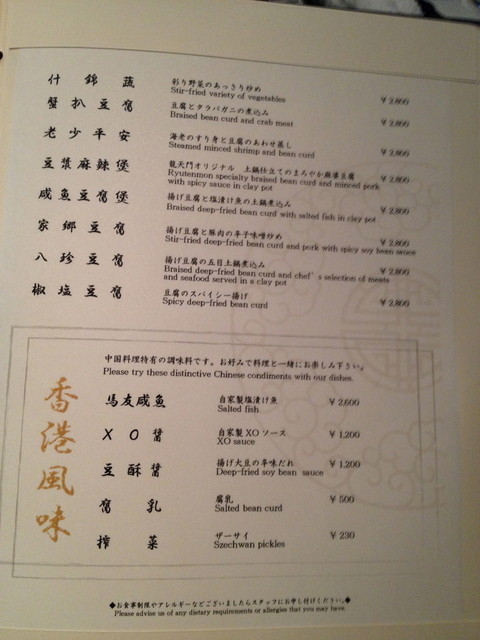 什錦蔬 彩り野菜のあっさり炒め ¥2,800
Stir-fried variety of vegetables
蟹扒豆腐 豆腐とタラバガニの煮込み ¥2,800
Braised bean curd and crab meat
老少平安 海老のすり身と豆腐のあわせ蒸し ¥2,800
Steamed minced shrimp and bean curd
豆漿麻辣煲 龍天門オリジナル 土鍋仕立てのまろやか麻婆豆腐 ¥2,800
Ryutenmon specialty braised bean curd and minced pork
with spicy sauce in clay pot
咸魚豆腐煲 揚げ豆腐と塩漬け魚の土鍋煮込み ¥2,800
Braised deep-fried bean curd with salted fish in clay pot
家郷豆腐 揚げ豆腐と豚肉の辛子味噌炒め ¥2,800
Stir-fried deep-fried bean curd and pork with spicy soy bean sauce
八珍豆腐 揚げ豆腐の五目土鍋煮込み ¥2,800
Braised deep-fried bean curd and chef's selection of meats
and seafood served in a clay pot
椒塩豆腐 豆腐のスパイシー揚げ ¥2,800
Spicy deep-fried bean curd
香港風味
中国料理特有の調味料です。お好みで料理と一緒にお楽しみ下さい。
Please try these distinctive Chinese condiments with our dishes.
馬友咸魚 自家製塩漬け魚 ¥2,600
Salted fish
XO醤 自家製XOソース ¥1,200
XO sauce
豆酥醤 揚げ大豆の辛味だれ ¥1,200
Deep-fried soy bean sauce
腐乳 腐乳 ¥500
Salted bean curd
搾菜 ザーサイ ¥230
Szechwan pickles
◆お食事制限やアレルギーなどございましたらスタッフにお申し付けください。◆
Please advise us of any dietary requirements or allergies that you may have.